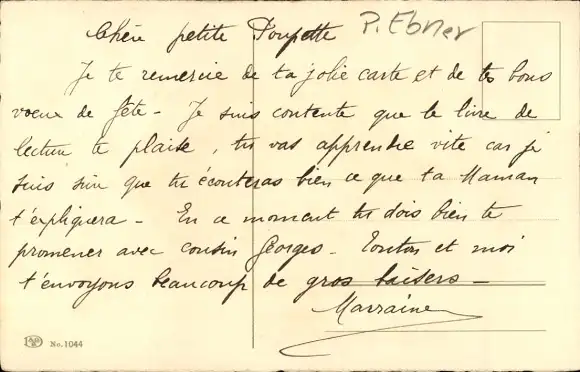 Chère petite Poupette
P. Ebner
Je te remercie de ta jolie carte et de tes bons
voeux de fête - Je suis contente que le livre de
lecture te plaise, tu vas apprendre vite car je
suis sûre que tu écouteras bien ce que ta Maman
t'expliquera - En ce moment tu dois bien te
promener avec cousin Georges - Tonton et moi
t'envoyons beaucoup de gros baisers -
Marraine
No. 1044